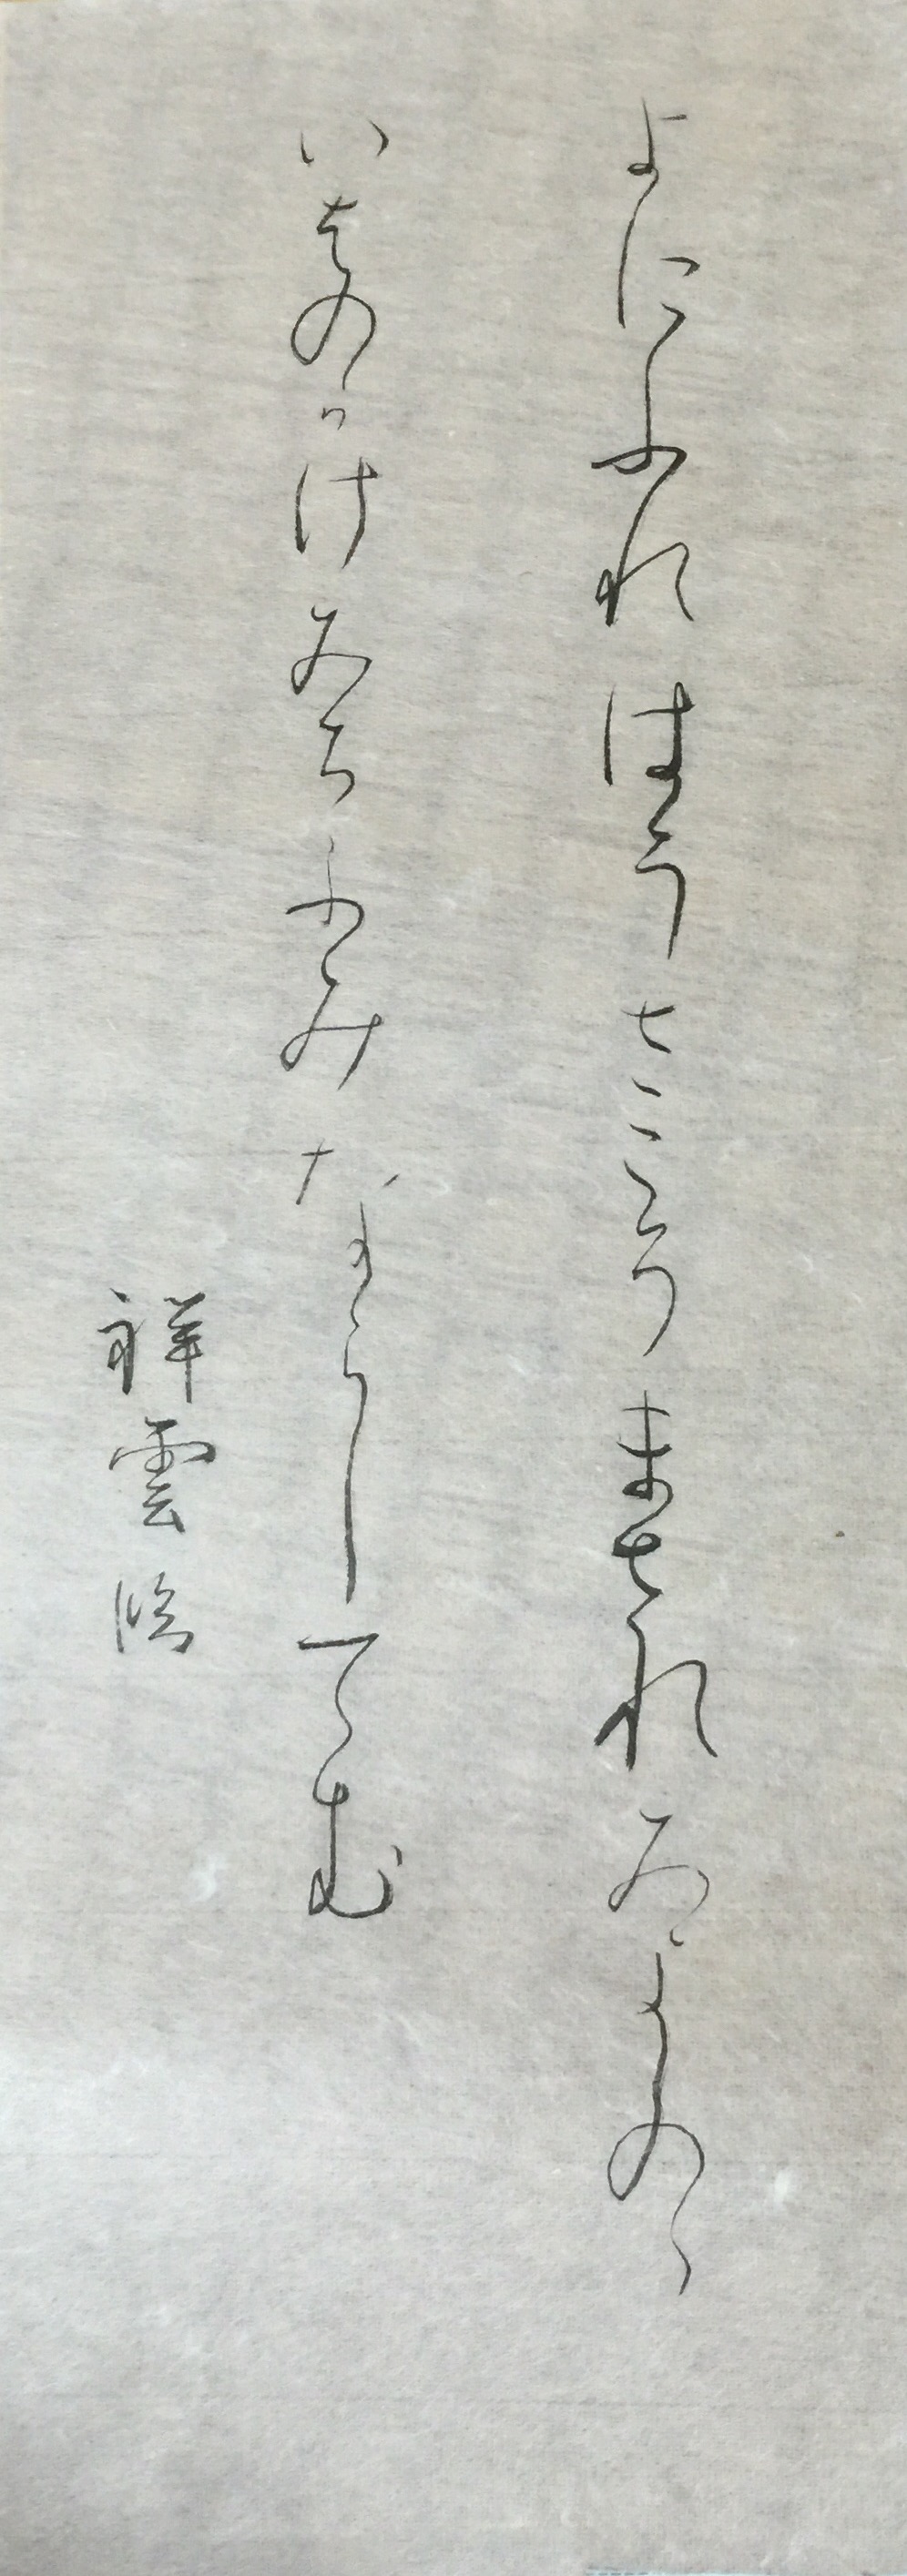 よにふれはうさこそまされみよしのゝ
いはのかけみちふみならしてむ
祥雲臨